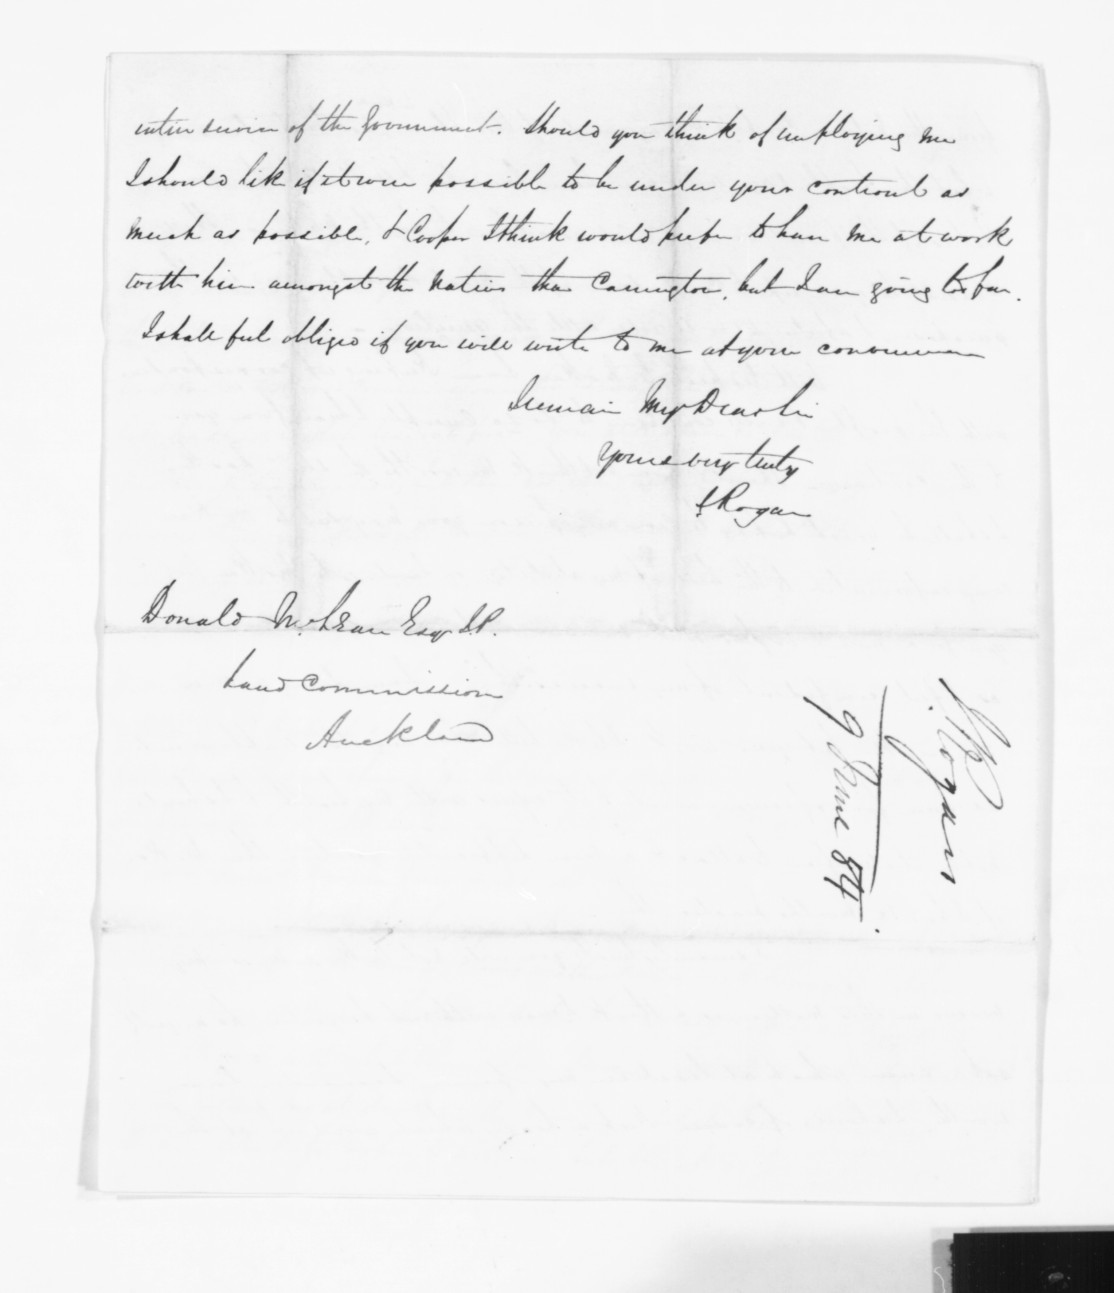 entire service of the Government. Should you think of employing me
I should like if it were possible to be under your controul as
much as possible, & Cooper I think would prefer to have me at work
with him amongst the natives than Carrington, but I am going too far.
I shall feel obliged if you will write to me at your convenience
I remain My Dear Sir
Yours very truly
J Rogan
Donald McLean Esqr J.P.
Land Commission
Auckland
J. Rogan
9 June 54.